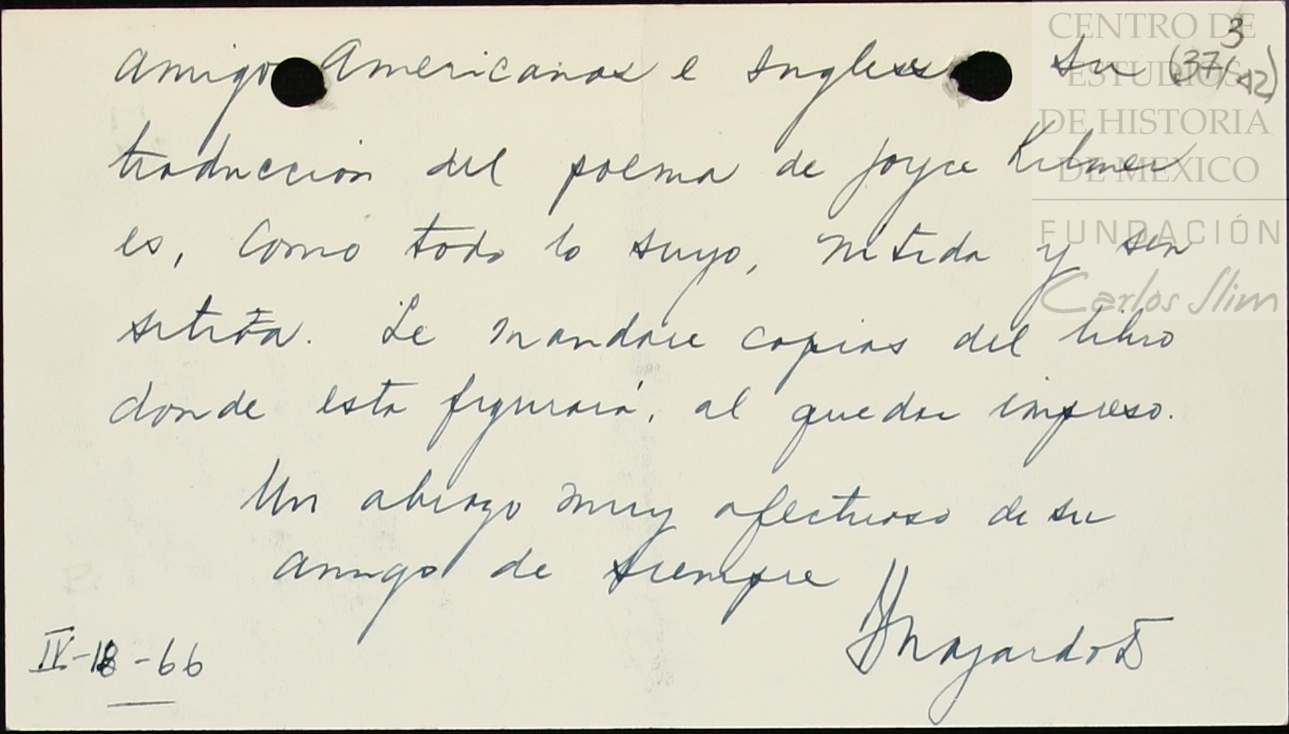 amigos Americanos e Ingleses Su
3
(37/42)
traduccion del poema de Joyce Kilmer
es, como todo lo suyo, nitida y sen
sitiva. Le mandare copias del libro
donde esta figurará, al quedar impreso.
Un abrazo muy afectuoso de su
amigo de siempre
IV-18-66
CENTRO DE
ESTUDIOS
DE HISTORIA
DE MEXICO
FUNDACIÓN
Carlos Slim